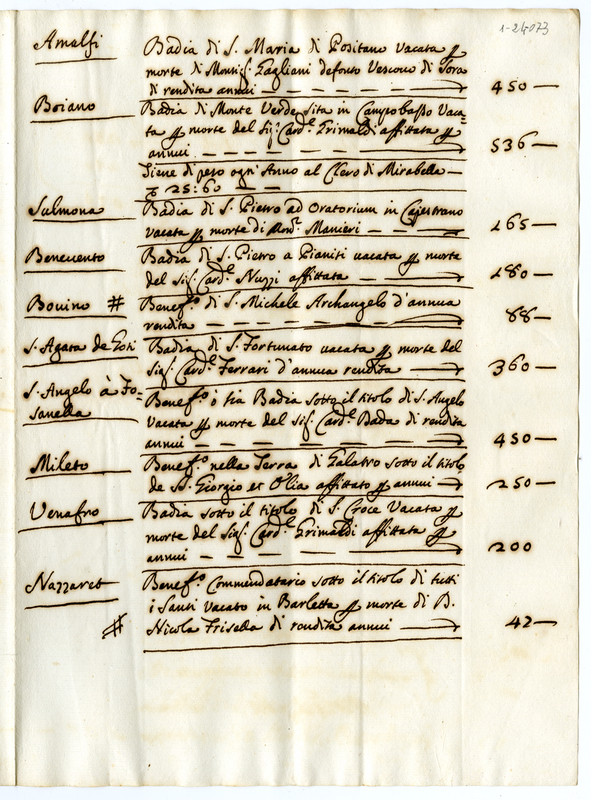 1-24073
Amalfi
Badia di S. Maria di Positano vacata p
morte di Monsig. Gagliani defonto Vescovo di Sora
di rendita annui
450
Boiano
Badia di Monte Verde sita in Campobasso vaca-
ta p morte del Sig. Card.l Grimaldi affittata p
annui
536
Tiene di peso ogn'Anno al Clero di Mirabella
25:60
Sulmona
Badia di S. Pietro ad Oratorium in Capestrano
vacata p morte di Manieri
165
Benevento
Badia di S. Pietro a Pianiti vacata p morte
del Sig. Card.l Nuzzi affittata
180
Bovino #
Benef.o di S. Michele Archangelo d'annua
rendita
88
S. Agata de Goti
Badia di S. Fortunato vacata p morte del
Sig. Card.l Ferrari d'annua rendita
360
S. Angelo à Fo-
sanella
Benef.o ò sia Badia sotto il titolo di S. Angelo
vacata p morte del Sig. Card.l Bada di rendita
annui
450
Mileto
Benef.o nella Terra di Galatro sotto il titolo
de SS. Giorgio et Olia affittato p annui
250
Venafro
Badia sotto il titolo di S. Croce Vacata p
morte del Sig. Card.l Grimaldi affittata p
annui
200
Nazzaret
#
Benef.o Commendatario sotto il titolo di tutti
i Santi vacato in Barletta p morte di D.
Nicola Frisella di rendita annui
42